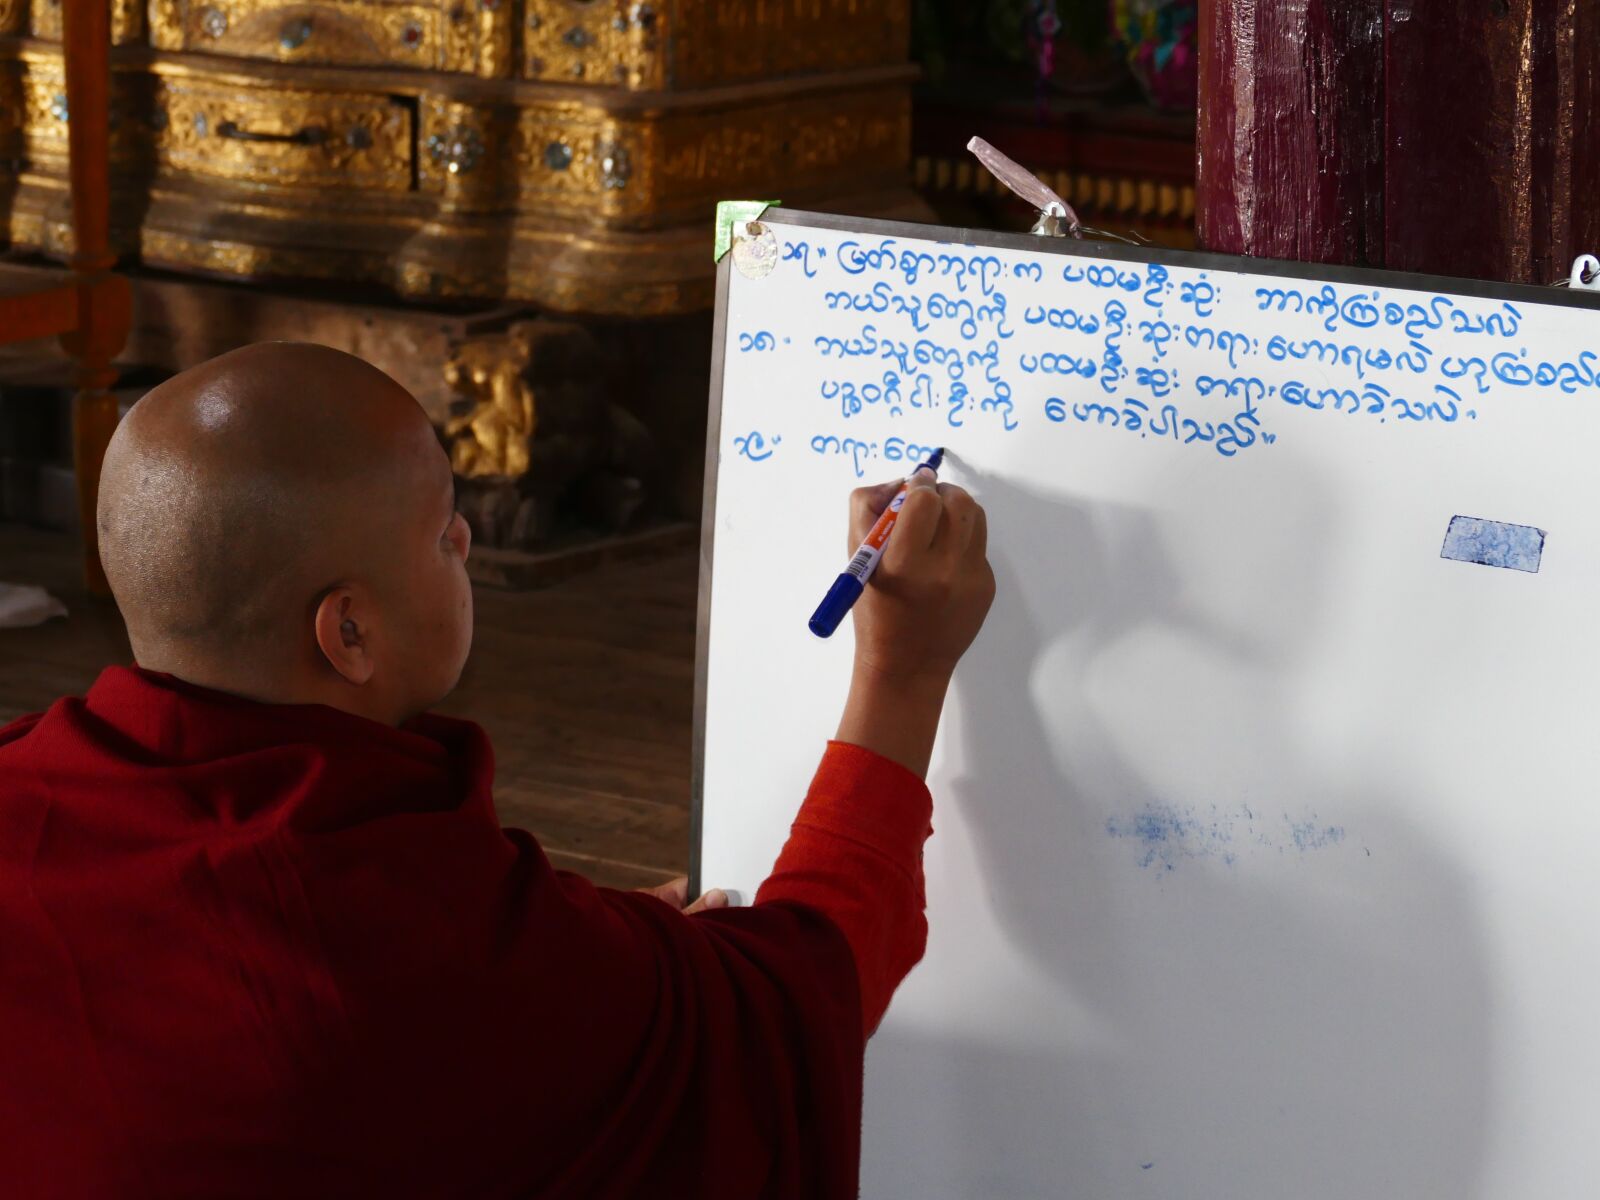 ၁၇။ မြတ်စွာဘုရားက ပထမဦးဆုံး ဘာကိုကြံစည်သလဲ
ဘယ်သူတွေကို ပထမဦးဆုံးတရားဟောရမလဲ ဟုကြံစည်
၁၈။ ဘယ်သူတွေကို ပထမဦးဆုံး တရားဟောခဲ့သလဲ။
ပဉ္စဝဂ္ဂီငါးဦးကို ဟောခဲ့ပါသည်။
၁၉။ တရားတေ